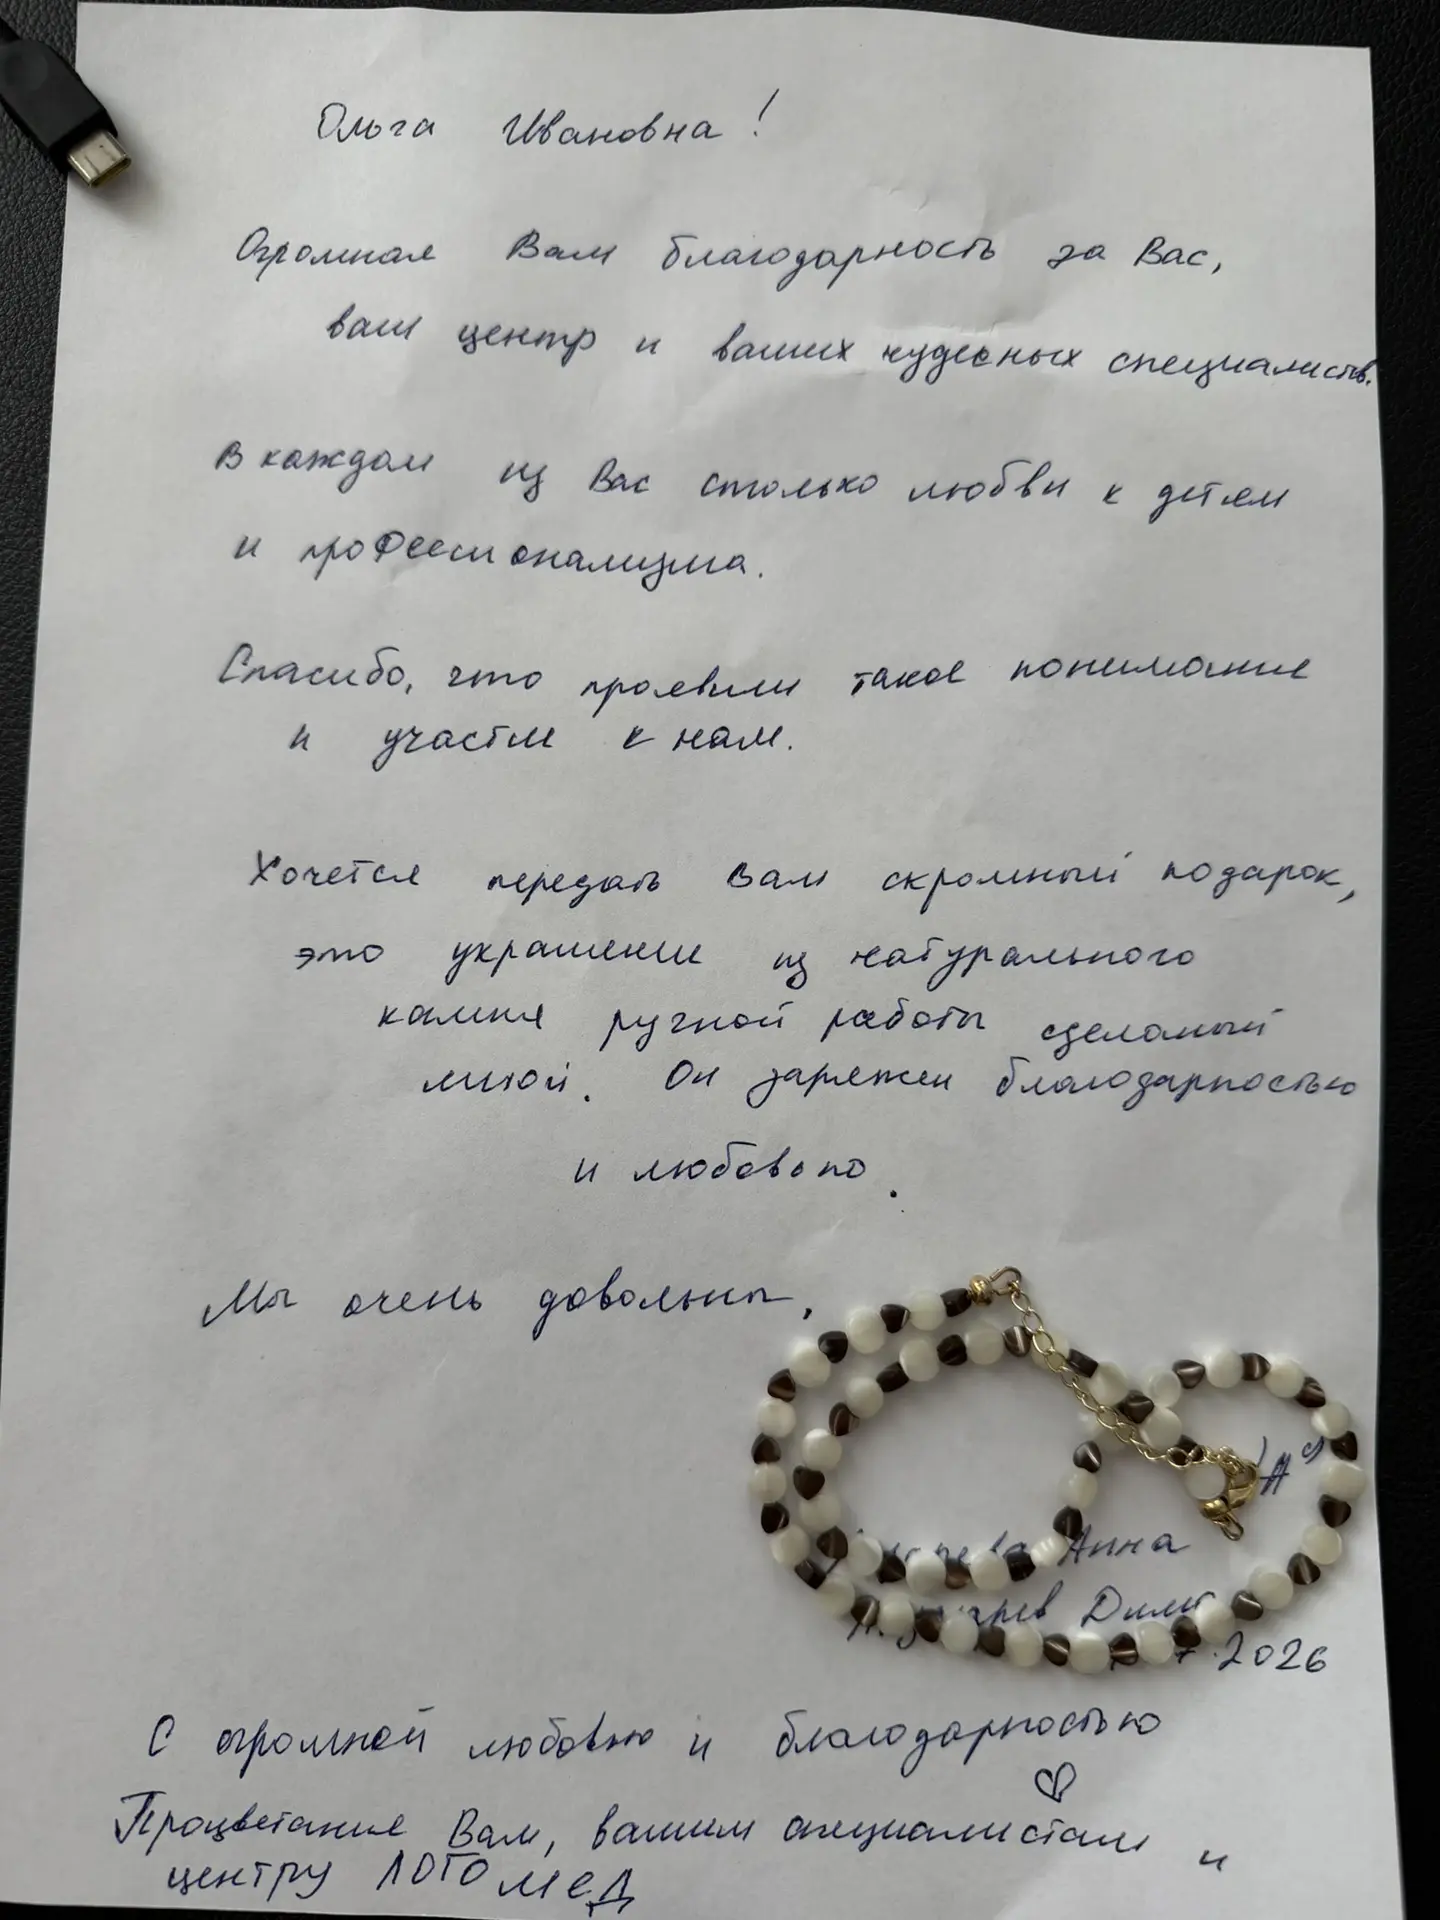 Ольга Ивановна!
Огромная Вам благодарность за Вас,
ваш центр и ваших чудесных специалиств.
В каждом из Вас столько любви к детям
и профессионализма.
Спасибо, что проявили такое понимание
и участие к нам.
Хочется передать Вам скромный подарок,
это украшение из натурального
камня ручной работы сделаный
мной. Он заряжен благодарностью
и любовью.
Мы очень довольны,
Анна
2026
С огромной любовью и благодарностью
Процветание Вам, вашим специалистам и
центру ЛОГОМЕД